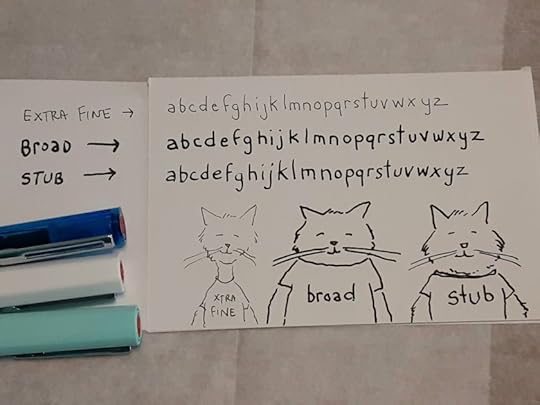 EXTRA FINE → abcdefghijklmnopqrstuvwxyz
BROAD → abcdefghijklmnopqrstuvwxyz
STUB → abcdefghijklmnopqrstuvwxyz
XTRA FINE
broad
stub